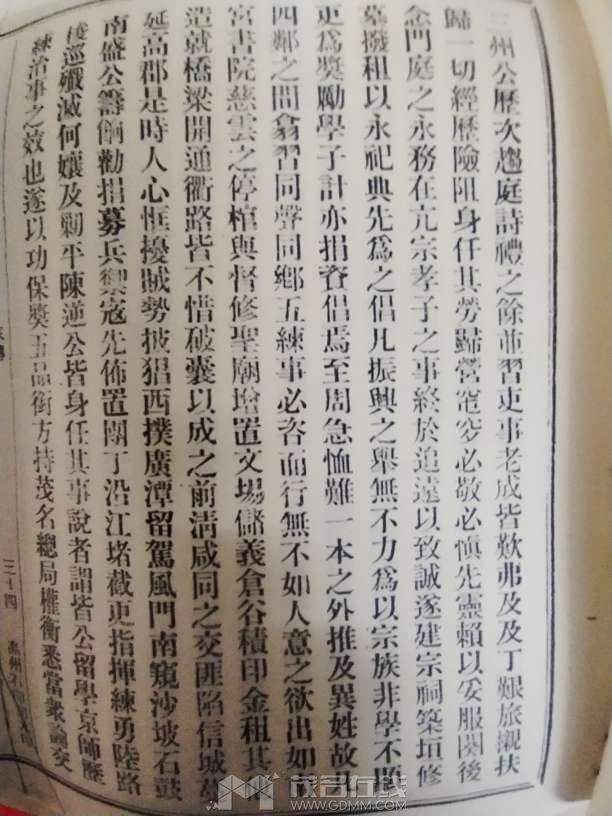 三州公歷次趨庭詩禮之餘並習吏事老成皆歎弗及及丁艱旅櫬扶
歸一切經歷險阻身任其勞歸營窀穸必敬必慎先靈賴以妥服闋後
念門庭之永務在亢宗孝子之事終於追遠以致誠遂建宗祠築垣修
墓撥租以永祀典先為之倡凡振興之舉無不力為以宗族非學不顯
更為獎勵學子計亦捐資倡焉至周急恤難一本之外推及異姓故里
四鄰之間翕習同聲同鄉五練事必咨而行無不如人意之欲出如
宮書院慈雲之停棺與督修聖廟增置文場儲義倉谷積印金租其
造就橋梁開通衢路皆不惜破囊以成之前清咸同之交匪陷信城
延高郡是時人心恇擾賊勢披猖西撲廣潭留駕風門南窺沙坡石鼓
南盛公籌餉勸捐募兵禦寇先佈置團丁沿江堵截更指揮練勇陸路
巡殲滅何孃及剿平陳逆公皆身任其事說者謂皆公留學京師歷
練治事之效也遂以功保獎五品銜方持茂名總局權衡悉當衆論交
三十四
WWW.GDMM.COM